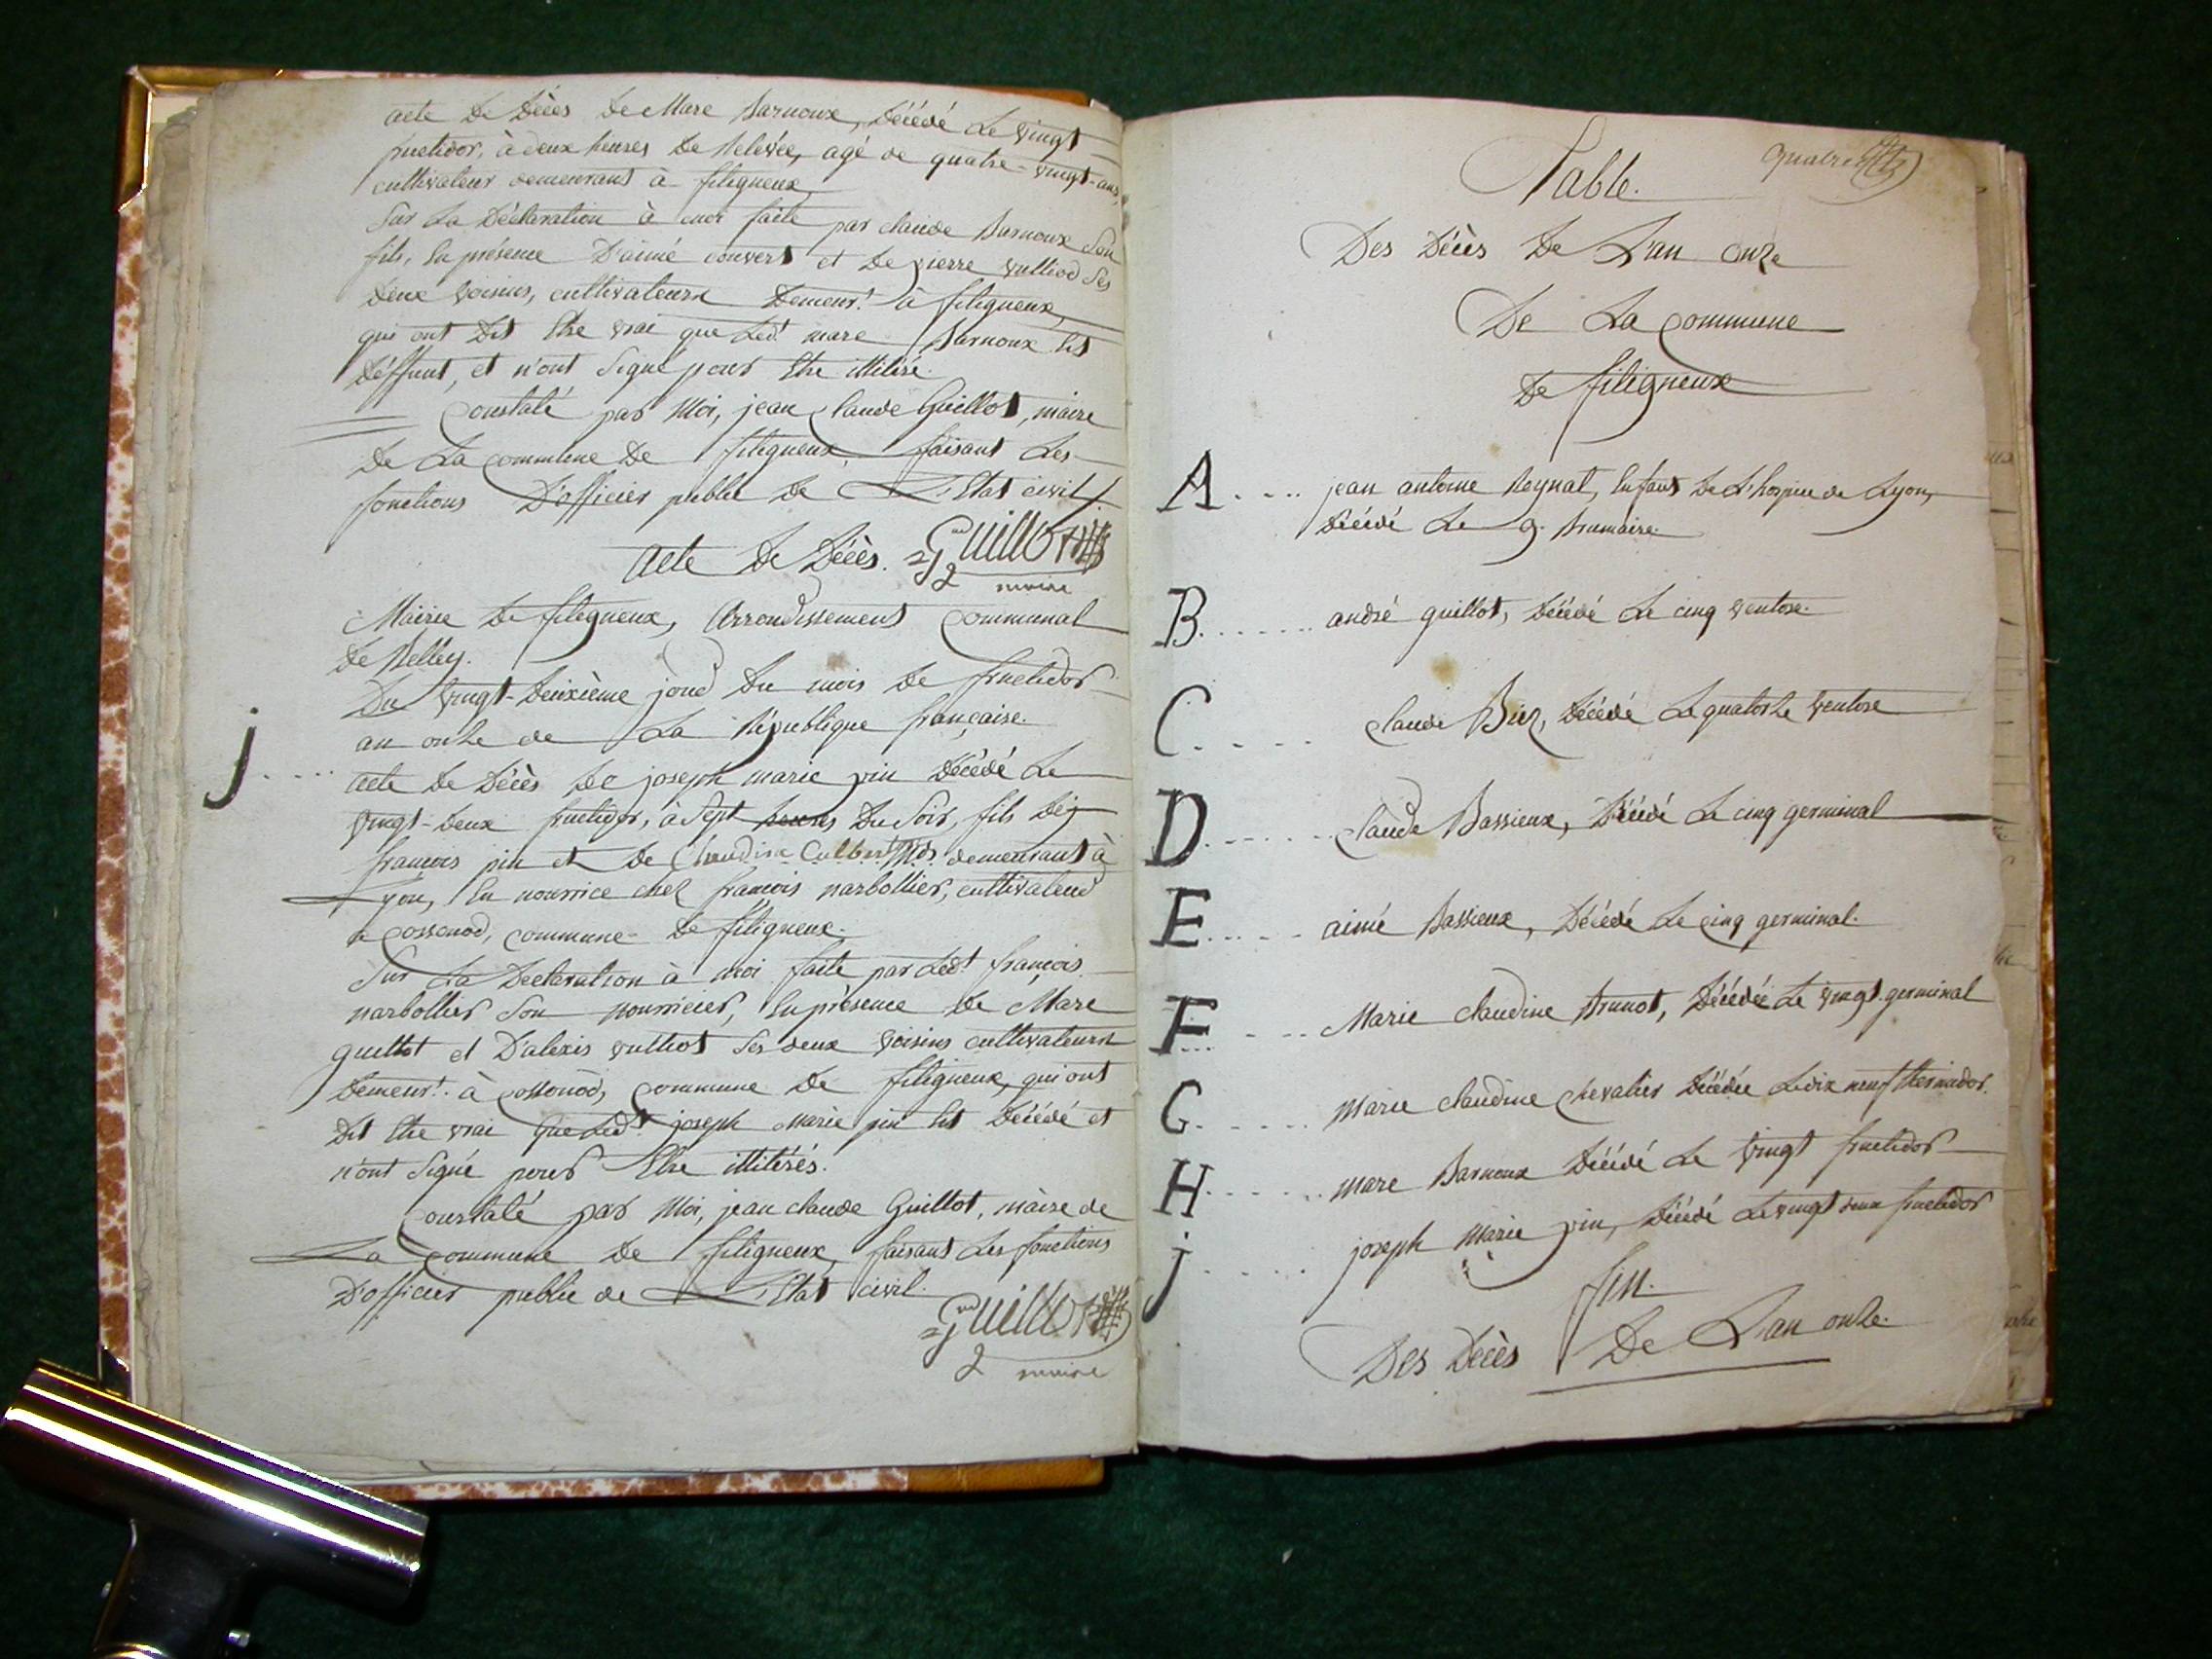 acte de décès de Marc Barnoux, décédé le vingt
fructidor, à deux heures de relevée, agé de quatre-vingt-ans,
cultivateur demeurant à filigneux,
Sur la déclaration à moi faite par claude Barnoux son
fils, en présence d'aimé convert et de pierre vulliod ses
deux voisins, cultivateurs demeurt. à filigneux,
qui ont dit être vrai que ledt. marc Barnoux est
déffunt, et n'ont signé pour être illitéré.
constaté par Moi, jean claude Guillot, maire
de la commune de filigneux, faisant les
fonctions d'officier public de L'Etat civil
acte de décès. Guillot
maire
Mairie de filigneux, arrondissement communal
de Belley.
Du vingt-deuxième jour du mois de fructidor
an onze de la République française.
j
acte de décès de joseph marie pin décédé le
vingt-deux fructidor, à sept heures du soir, fils de
françois pin et de Claudine demeurant à
Lyon, en nourrice chez françois narbollier, cultivateur
à cossonod, commune de filigneux.
Sur la déclaration à moi faite par ledt. françois
narbollier son nourricier, en présence de Marc
guillot et d'alexis vulliot ses deux voisins cultivateurs
demeurt. à cossonod, commune de filigneux, qui ont
dit être vrai que ledt. joseph marie pin est décédé et
n'ont signé pour être illitérés.
constaté par Moi, jean claude Guillot, maire de
La commune de filigneux, faisant les fonctions
d'officier public de L'Etat civil.
Guillot
maire
quatre
Table.
Des décès de L'an onze
De La commune
de filigneux
A jean antoine Reynat, enfant de l'hospice de Lyon,
décédé le 9. brumaire.
B. andré guillot, décédé le cinq ventose.
C. claude Biez, décédé le quatorze ventose
D claude Bassieux, décédé le cinq germinal
E aimé Bassieux, décédé le cinq germinal.
F Marie claudine Brunot, décédée le vingt germinal
G marie claudine chevalier décédée le dix neuf thermidor.
H marc Barnoux décédé le vingt fructidor
j joseph marie pin, décédé le vingt deux fructidor
fin.
Des décès De L'an onze.